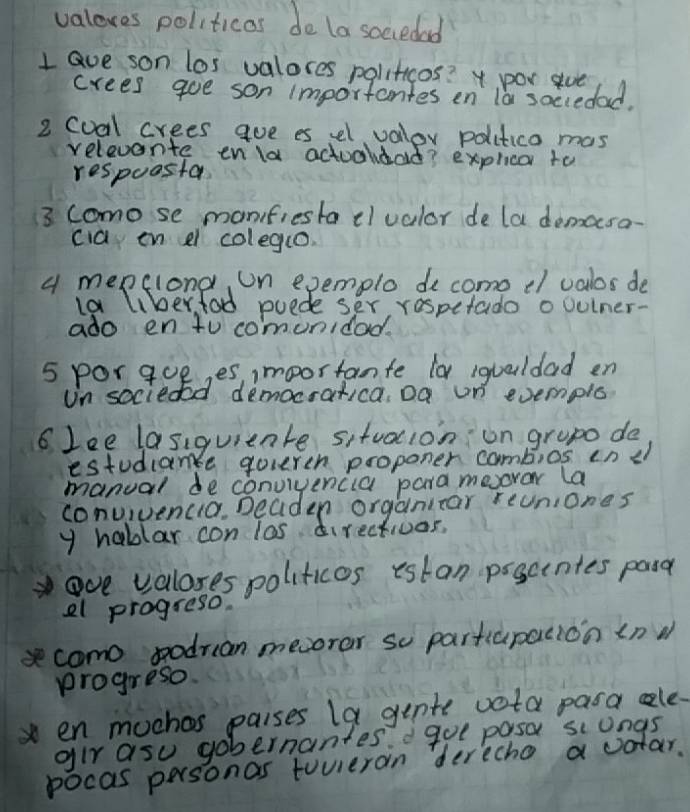 valores politicos de la sociedad
1 Que son los valores politicos? y por que
crees que son importantes en la sociedad.
2 Cual crees que es el valor politico mas
relevante en la actualidad? explica tu
respuesta
3 Como se manifiesta el valor de la democra-
cia en el colegio.
4 menciona un ejemplo de como el valor de
la libertad puede ser respetado o vulner-
ado en tu comunidad.
5 por que es importante la igualdad en
un sociedad democratica. Da un ejemplo
6 Lee la siguiente situacion: un grupo de
estudiante quieren proponer cambios en el
manual de convivencia para mejorar la
convivencia. Deciden organizar reuniones
y hablar con los directivos.
* Que valores politicos estan presentes para
el progreso.
* como podrian mejorar su participacion en el
progreso.
* en muchos paises la gente vota para ele-
gir a su gobernantes. ¿que pasa si unas
pocas personas tuvieran derecho a votar.